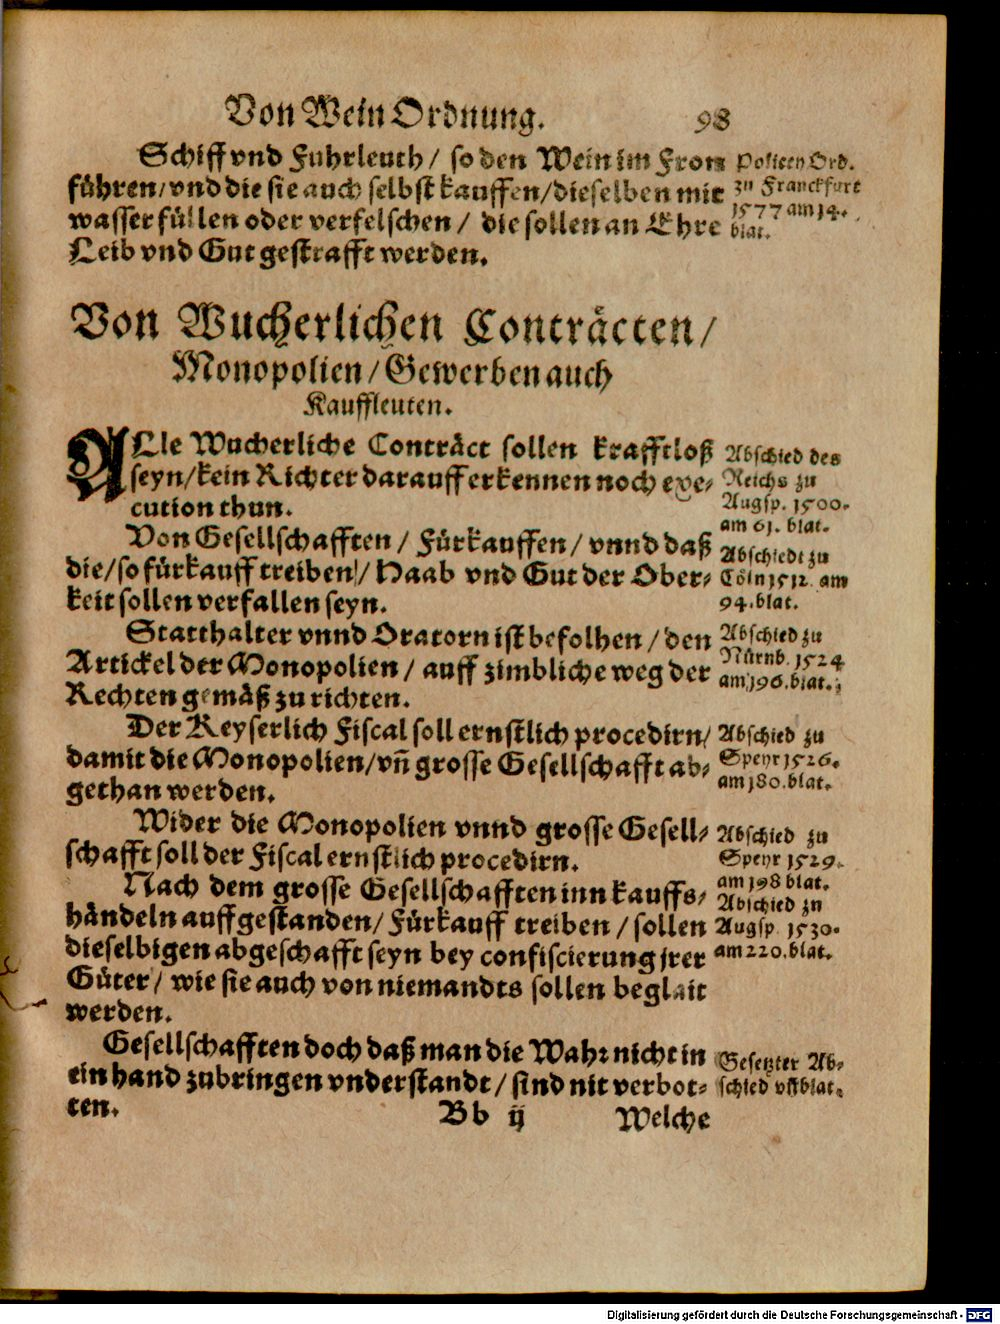 Von Wein Ordnung. 98
Schiff vnd Fuhrleuth / so den Wein im Fron
führen/vnd die sie auch selbst kauffen/dieselben mit
wasser füllen oder verfelschen / die sollen an Ehre
Leib vnd Gut gestrafft werden.
Policey Ord.
zu Franckfurt
1577 am 14.
blat.
Von Wucherlichen Conträcten /
Monopolien / Gewerben auch
Kauffleuten.
ALle Wucherliche Conträct sollen krafftloß
seyn/kein Richter darauff erkennen noch exe-
cution thun.
Abschied des
Reichs zu
Augsp. 1500.
am 61. blat.
Von Gesellschafften / Fürkauffen / vnnd daß
die/so fürkauff treiben / Haab vnd Gut der Ober-
keit sollen verfallen seyn.
Abschiedt zu
Cöln 1512. am
94. blat.
Statthalter vnnd Oratorn ist befolhen / den
Artickel der Monopolien / auff zimbliche weg der
Rechten gemäß zu richten.
Abschied zu
Nürnb. 1524
am 196. blat.
Der Keyserlich Fiscal soll ernstlich procedirn/
damit die Monopolien/vñ grosse Gesellschafft ab-
gethan werden.
Abschied zu
Speyr 1526.
am 180. blat.
Wider die Monopolien vnnd grosse Gesell-
schafft soll der Fiscal ernstlich procedirn.
Abschied zu
Speyr 1529.
am 198 blat.
Nach dem grosse Gesellschafften inn kauffs-
händeln auffgestanden/ Fürkauff treiben / sollen
dieselbigen abgeschafft seyn bey confiscierung jrer
Güter / wie sie auch von niemandts sollen beglait
werden.
Abschied zu
Augsp. 1530.
am 220. blat.
Gesellschafften doch daß man die Wahr nicht in
ein hand zubringen vnderstandt / sind nit verbot-
ten.
Gesetzter Ab-
schied blat.
Bb ij Welche
Digitalisierung gefördert durch die Deutsche Forschungsgemeinschaft - DFG